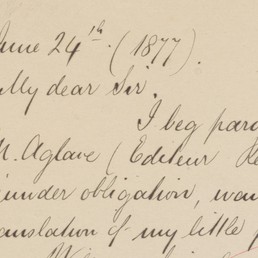 June 24th. (1877).
My dear Sir.
I beg
M. Aglave (Editeur
under obligation,
translation of my little